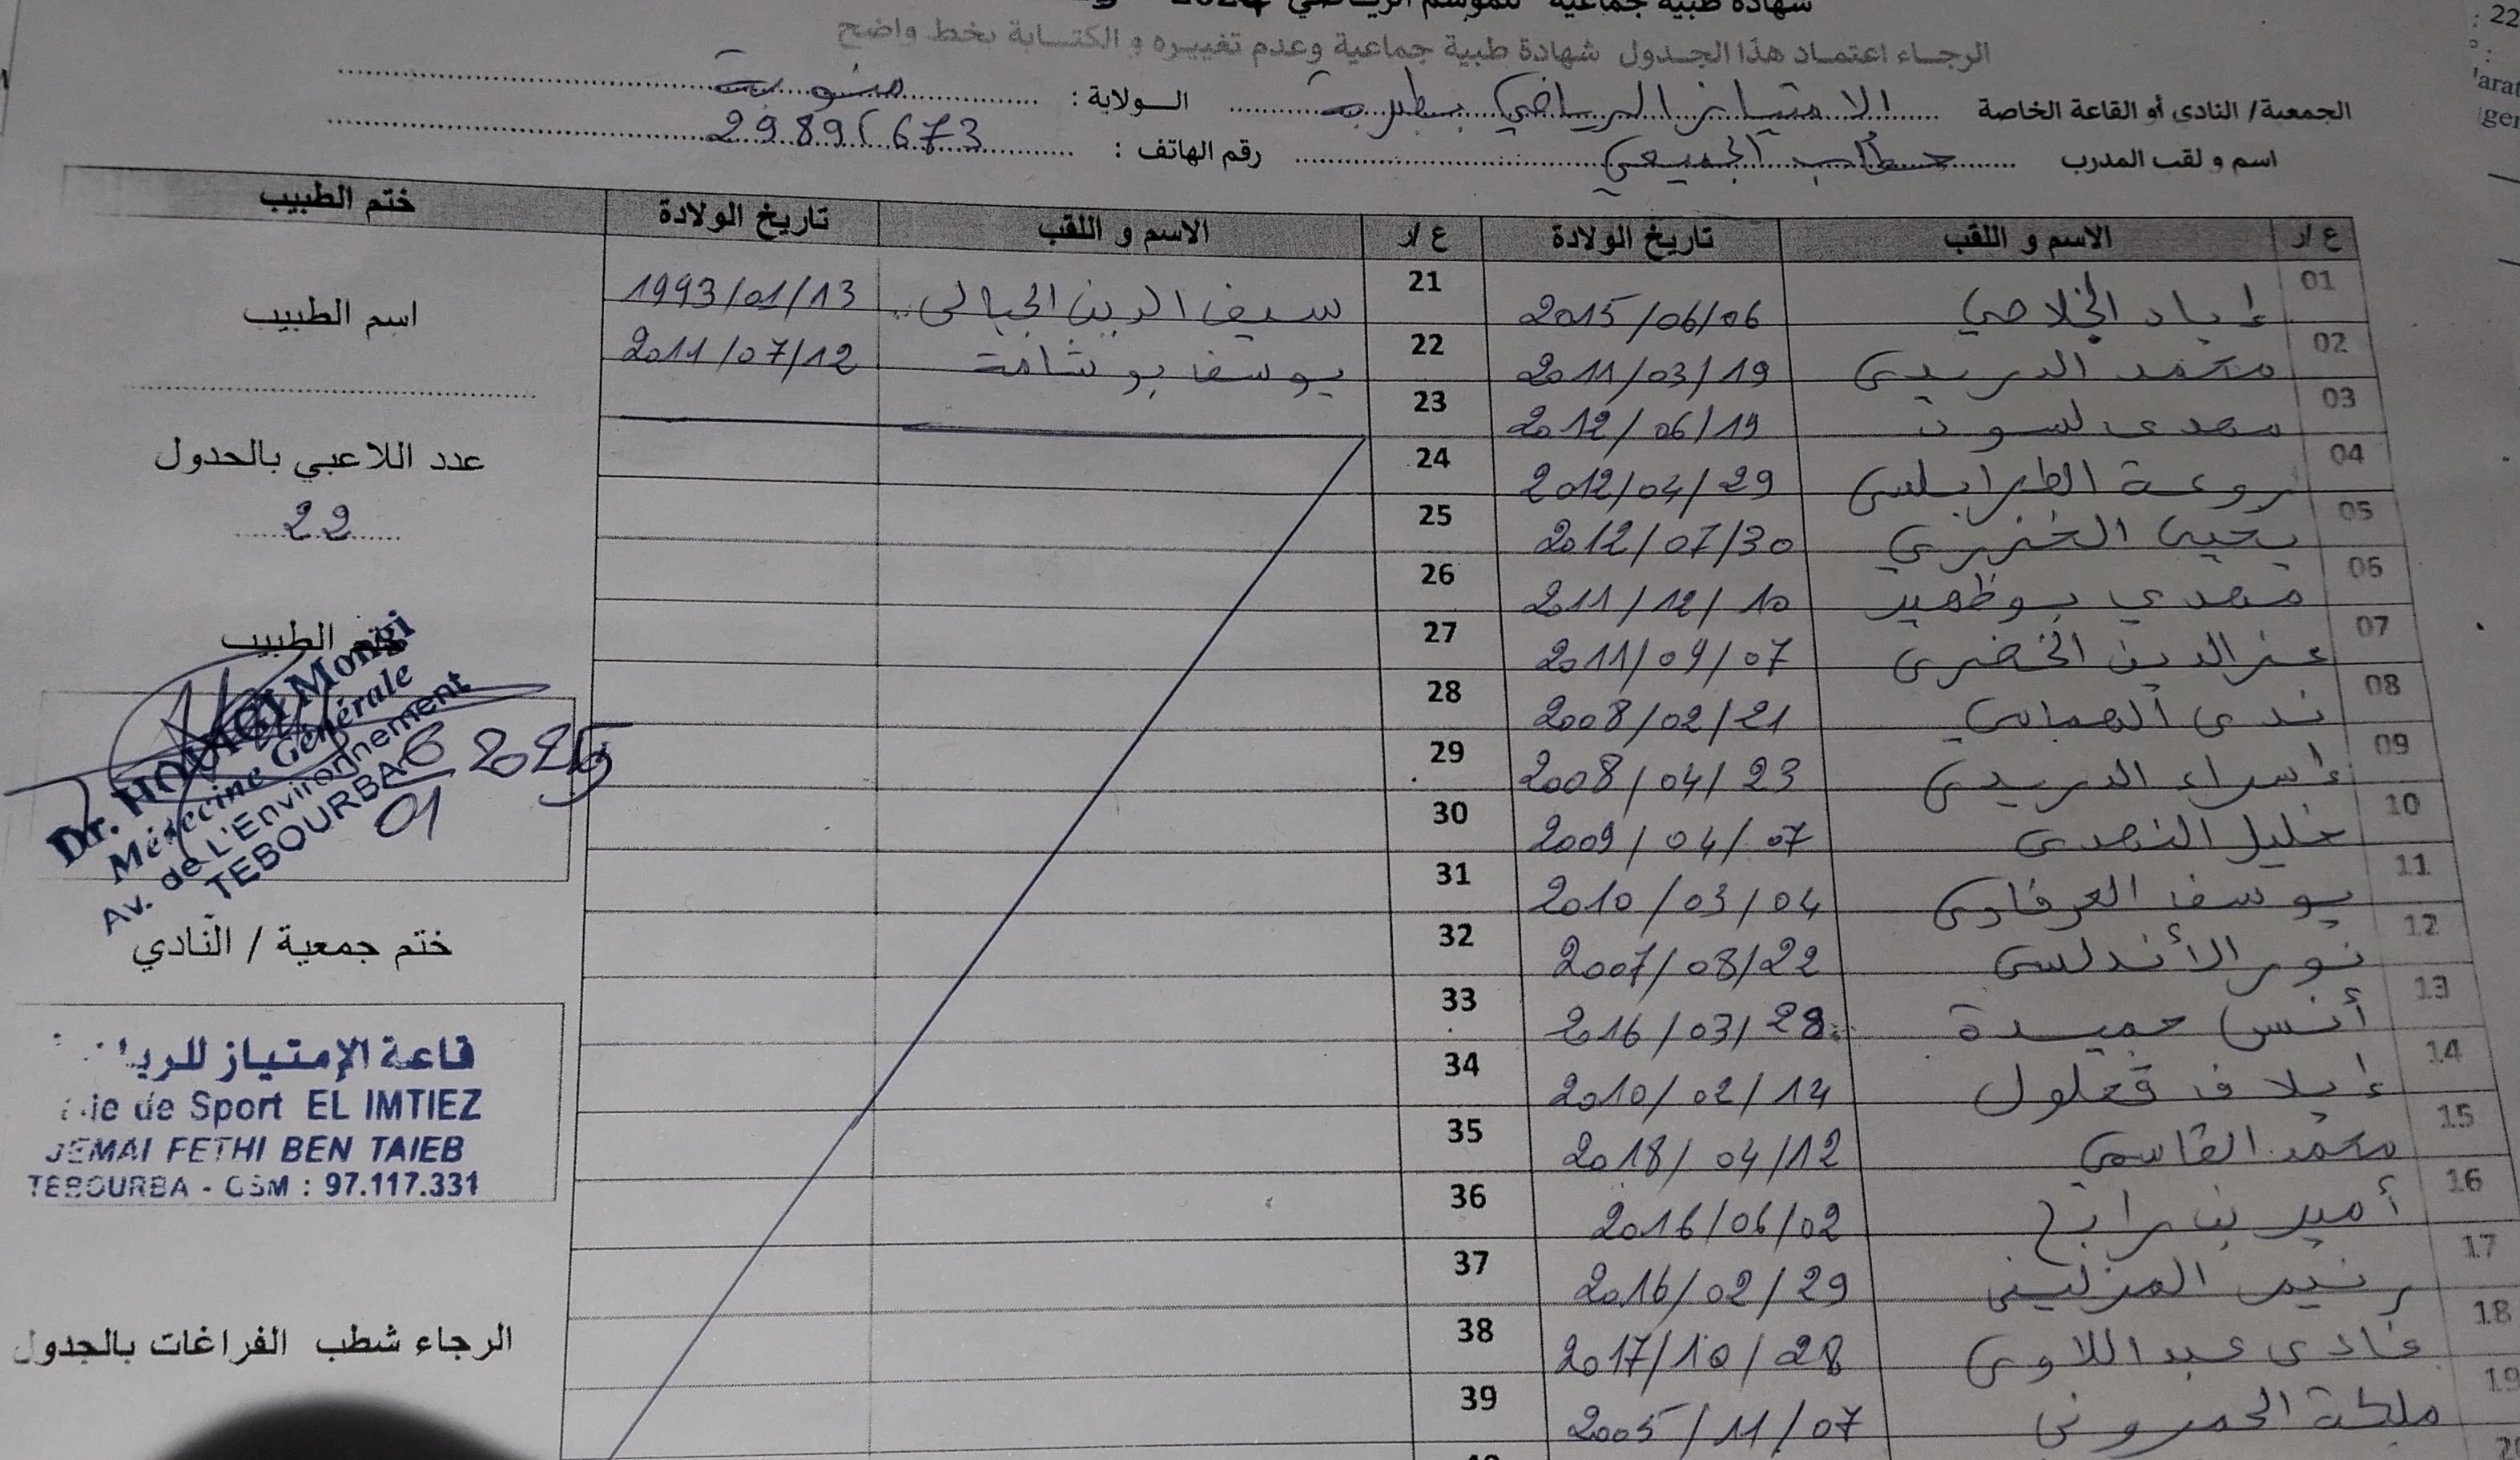 شهادة طبية جماعية للموسم الرياضي
الرجاء اعتماد هذا الجدول شهادة طبية جماعية وعدم تغييره و الكتابة بخط واضح
الجمعية/ النادي أو القاعة الخاصة الامتياز الرياضي بطبربة الولاية : منوبة
اسم و لقب المدرب الجميعي رقم الهاتف :
ع/ر الاسم و اللقب تاريخ الولادة ع/ر الاسم و اللقب تاريخ الولادة ختم الطبيب
01 إياد الخلاصي 2015/06/06
02 محمد الدريدي 2011/03/19
03 مهدي لسود 2012/06/19
04 روعة الطرابلسي 2012/04/29
05 يحيى الخنيري 2012/07/30
06 مهدي بوظهير 2011/12/10
07 عزالدين الخضري 2011/09/07
08 ندى الهمامي 2008/02/21
09 إسراء الدريدي 2008/04/23
10 خليل النهدي 2009/04/07
11 يوسف العرفاوي 2010/03/04
12 نور الأندلسي 2007/08/22
13 أنس حميدة 2016/03/28
14 إيلاف قعلول 2010/02/14
15 محمد القاسمي 2018/04/12
16 أمير بن رابح 2016/06/02
17 رنيم المزليني 2016/02/29
18 غادي عبد اللاوي 2017/10/28
19 مليكة الحمروني 2005/11/07
21 سيف الدين الجبالي 1993/01/13
22 يوسف بوشامة 2011/07/12
23
24
25
26
27
28
29
30
31
32
33
34
35
36
37
38
39
اسم الطبيب
عدد اللاعبي بالجدول
22
ختم الطبيب
Dr. Mongi
Médecine Générale
Av. de L'Environnement
TEBOURBA
6 01 2025
ختم جمعية / النّادي
قاعة الإمتياز
de Sport EL IMTIEZ
JEMAI FETHI BEN TAIEB
TEBOURBA - GSM : 97.117.331
الرجاء شطب الفراغات بالجدول